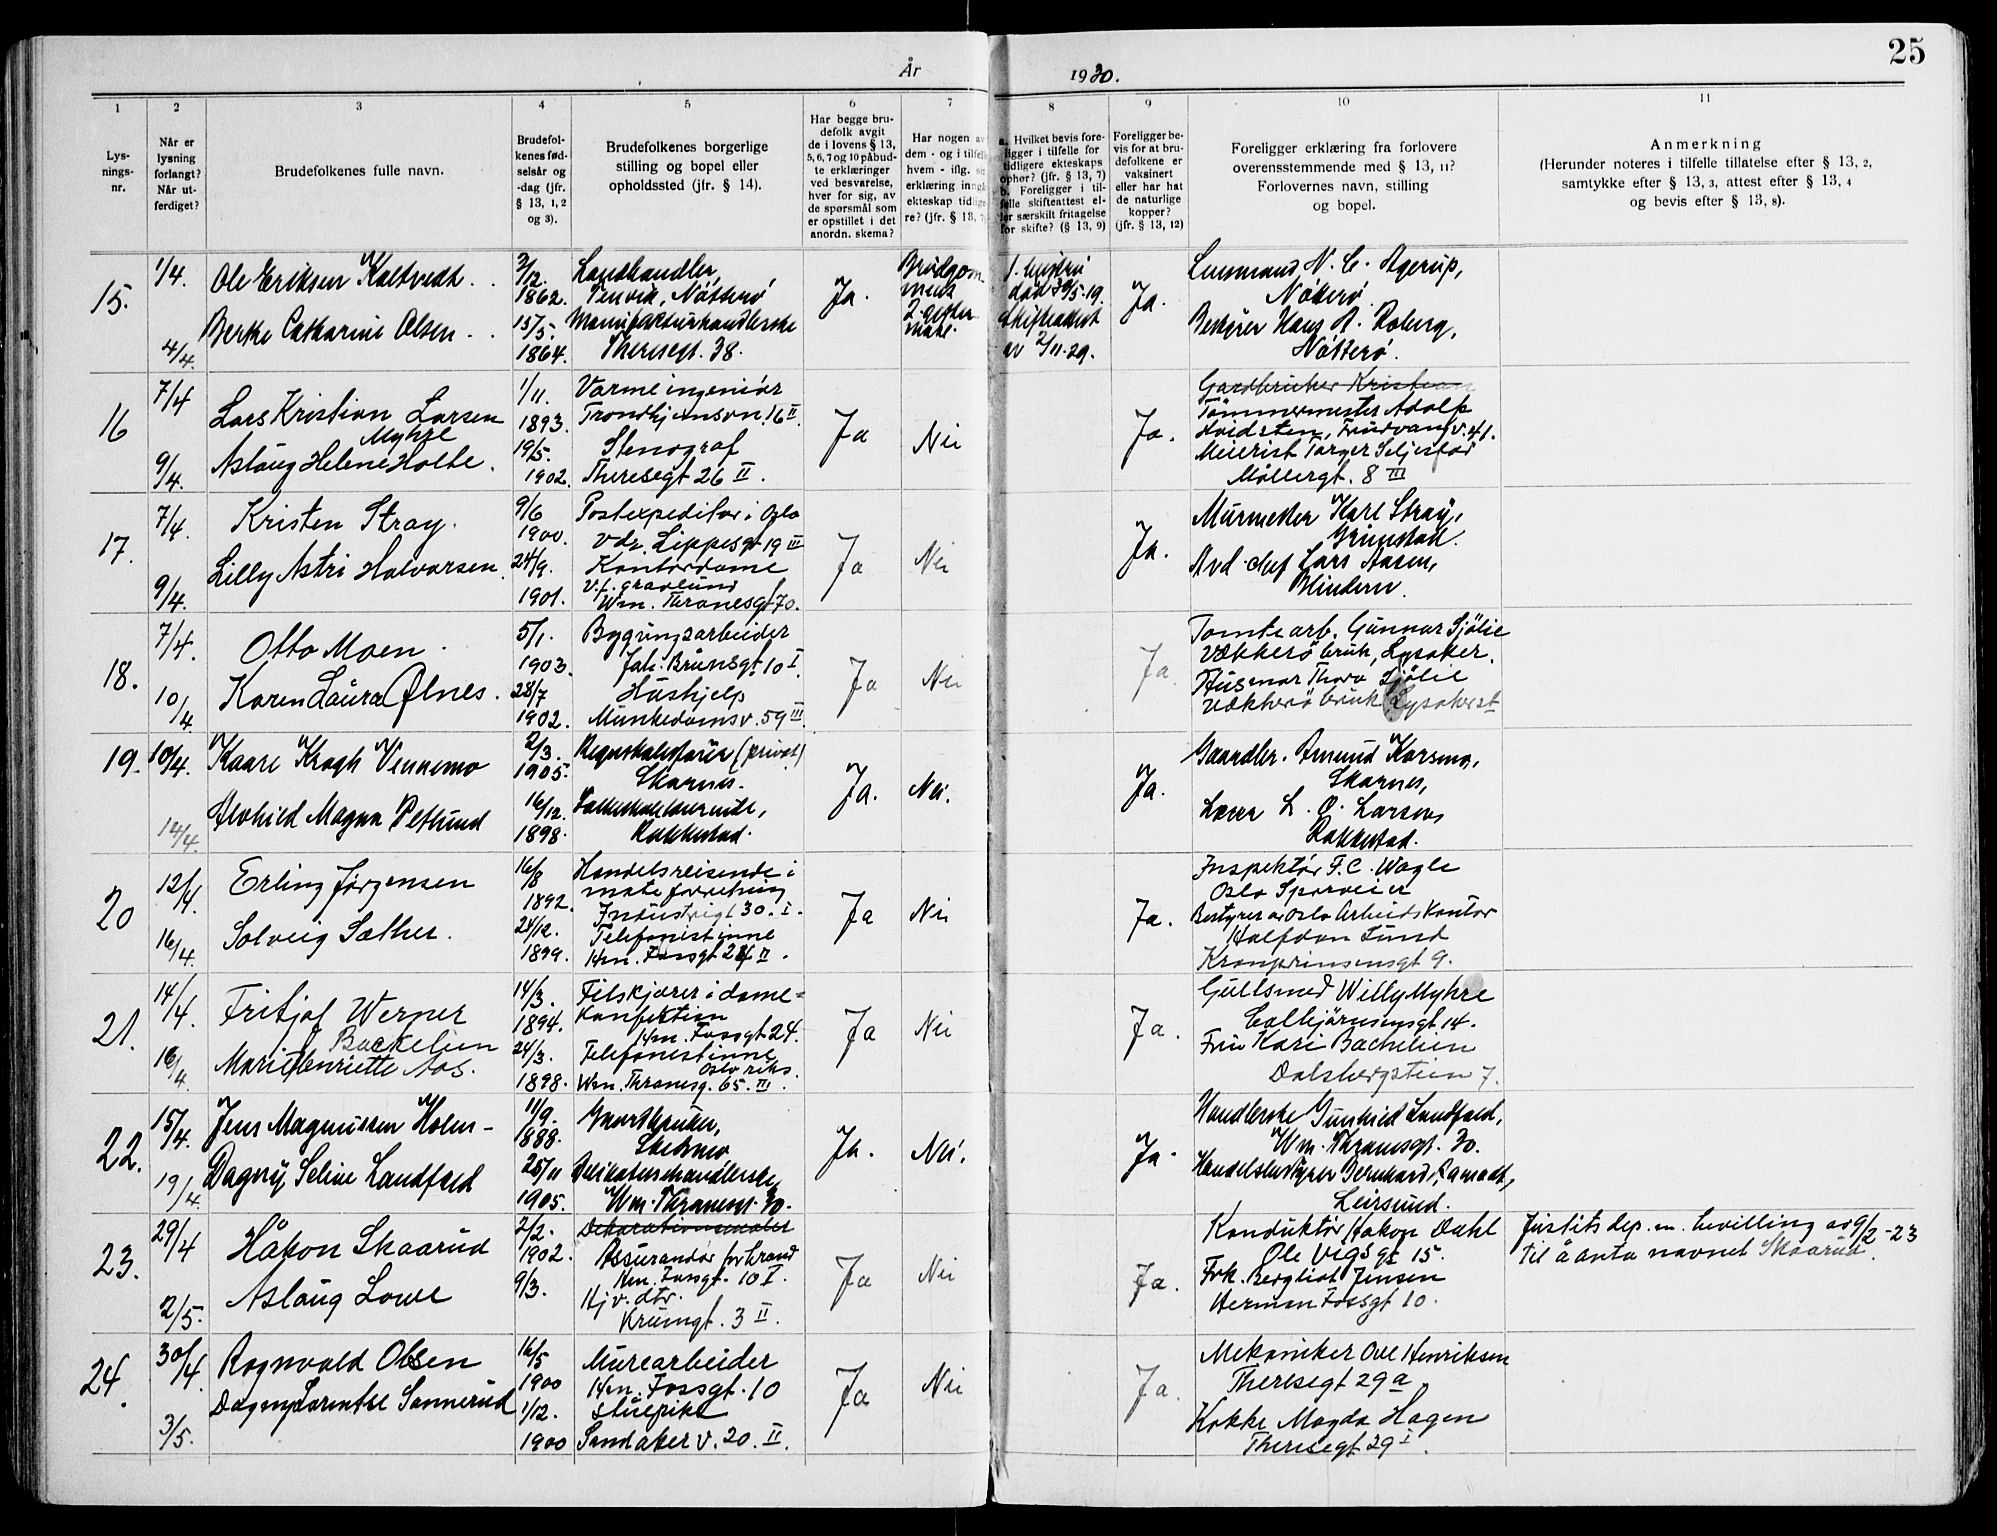 25
År 1930.
1 2 3 4 5 6 7 8 9 10 11
Lys-
nings-
nr.
Når er
lysning
forlangt?
Når ut-
ferdiget?
Brudefolkenes fulle navn.
Brudefol-
kenes fød-
selsår og
-dag (jfr.
§ 13, 1, 2
og 3).
Brudefolkenes borgerlige
stilling og bopel eller
opholdssted (jfr. § 14).
Har begge bru-
defolk avgit
de i lovens § 13,
5, 6, 7 og 10 påbud-
te erklæringer
ved besvarelse,
hver for sig, av
de spørsmål som
er opstillet i det
anordn. skema?
Har nogen av
dem - og i tilfelle
hvem - iflg. sin
erklæring inngå
ekteskap tidlige
re? (jfr. § 13, 7
a. Hvilket bevis fore-
ligger i tilfelle for
tidligere ekteskaps
ophør? (jfr. § 13, 7)
b. Foreligger i til-
felle skifteattest el-
ler særskilt fritagelse
for skifte? (§ 13, 9)
Foreligger be-
vis for at bru-
defolkene er
vaksinert
eller har hat
de naturlige
kopper?
(jfr. § 13, 12)
Foreligger erklæring fra forlovere
overensstemmende med § 13, 11?
Forlovernes navn, stilling
og bopel.
Anmerkning
(Herunder noteres i tilfelle tillatelse efter § 13, 2,
samtykke efter § 13, 3, attest efter § 13, 4
og bevis efter § 13, 8).
15.
1/4.
4/4.
Ole Eriksen Kaltvedt.
Berte Catharine Olsen
3/12.
1862.
15/5.
1864.
Landhandler,
Tenvik, Nøtterø
Manufakturhandlerske
Theresegt. 38.
Ja.
Brudgom-
mens
2. gifter-
mål.
1. hustru
død 30/5-19.
Skifteattest
av 2/11.29.
Ja.
Lensmand N. C. Agerup,
Nøtterø.
Bestyrer Hans A. Roberg,
Nøtterø.
16
7/4
9/4.
Lars Kristian Larsen
Myhre
Aslaug Helene Holte.
1/11.
1893.
19/5.
1902.
Varmeingeniør
Trondhjemsvn. 16 II.
Stenograf
Theresegt 26 II.
Ja
Nei
Ja.
Gardbruker Kristian
Tømmermester Adolf
Hvidsten, Furuvang v. 41.
Meierist Torger Seljesfor
Møllergt. 8 III
17.
7/4.
9/4.
Kristen Stray.
Lilly Astri Halvorsen.
9/6
1900.
24/9.
1901.
Postexpeditør i Oslo
v dr. Lippesgt 19 III
Kontordame
v.f. gravlund
Wm. Thranesgt 70.
Ja
Nei
Ja.
Murmester Karl Stray,
Grimstad.
Avd. chef Lars Aasen,
Blindern.
18.
7/4.
10/4
Otto Moen.
Karen Laura Ølnes.
5/1.
1903.
28/7
1902.
Bygningsarbeider
Joh: Brunsgt. 10 I.
Hushjelp
Munkedamsv. 59 III.
Ja
Nei
Ja
Tomtearb. Gunnar Sjølie
Vækkerø bruk, Lysaker.
Husmor Thora Sjølie
Vækkerø bruk, Lysaker st
19.
10/4.
14/4.
Kaare Krogh Vennemo
Alvhild Magna Vestlund
2/3.
1905.
16/12.
1898.
Regnskapsfører (privat)
Skarnes.
Folkeskolelærerinde,
Rakkestad.
Ja.
Nei.
Ja.
Gaardbr. Amund Karsmo,
Skarnes,
Lærer L. O. Larsen,
Rakkestad.
20
12/4.
16/4.
Erling Jørgensen
Solveig Sæther.
16/8
1892.
28/12.
1899.
Handelsreisende i
moteforretning
Industrigt 30. I.
Telefonistinne
Hm. Fossgt 24 II.
Ja
Nei
Ja.
Inspektør F. C. Wagle
Oslo Sporveier
Bestyrer av Oslo Arbeidskontor
Halfdan Lund
Kronprinsensgt 9.
21.
14/4.
16/4.
Fritjof Werner
Backelien
Marie Henriette Aas.
14/3.
1894.
24/3.
1898.
Tilskjærer i dame=
Konfektion
Hm. Fossgt 24.
Telefonistinne
Oslo riks.
Wm. Thranesg. 65. III.
Ja
Nei
Ja.
Gullsmed Willy Myhre
Colbjørnsensgt 14.
Fru Kari Bachelien
Dalsbergstien 7.
22.
15/4.
19/4.
Jens Magnussen Holm
Dagny Seline Landfald
11/9.
1888.
25/11
1905.
Gaardbruker,
Skedsmo
Delikatessehandlerske,
Wm. Thranesgt. 30.
Ja.
Nei.
Ja.
Handlerske Gunhild Landfald,
Wm. Thranesgt. 30.
Handelsbestyrer Bernhard Ramstad,
Leirsund.
23.
29/4
2/5.
Håkon Skaarud
Aslaug Lowe
2/2.
1902.
9/3.
Dekorationsmaler
Assurandør for brand
Hm. Fossgt. 10 I.
Hjv. dtr.
Krumgt. 3 II.
Ja
Nei
Ja.
Konduktør Hakon Dahl
Ole Vigsgt 15.
Frk. Bergliot Jensen
Herman Fossgt 10.
Justitsdep. m. bevilling av 9/2-23
til å anta navnet Skaarud.
24.
30/4.
3/5.
Ragnvald Olsen
Dagny Dorenthe Sannerud
16/5
1900
1/12.
1900
Murearbeider
Hm. Fossgt. 10
Stuepike
Sandaker v. 20. II.
Ja
Nei
Ja.
Mekaniker Ole Henriksen
Theresegt 29a
Kokke Magda Hagen
Theresegt 29 I.